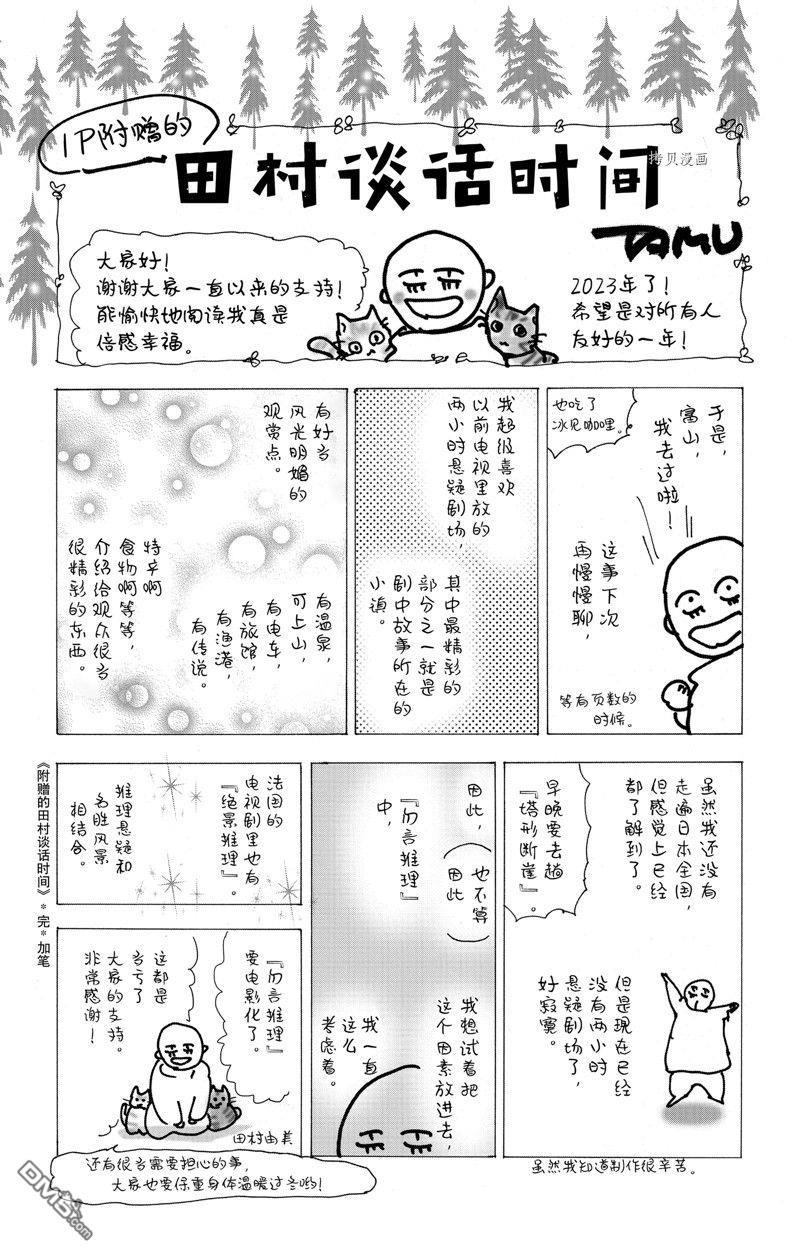 1P附赠的
田村谈话时间
拷贝漫画
TAMU
大家好!
谢谢大家一直以来的支持!
能愉快地阅读我真是
倍感幸福。
2023年了!
希望是对所有人
友好的一年!
于是,
富山,
我去过啦!
也吃了
冰见咖哩。
这事下次
再慢慢聊,
等有页数的
时候。
我超级喜欢
以前电视里放的
两小时悬疑剧场,
其中最精彩的
部分之一就是
剧中故事所在的
小镇。
有好多
风光明媚的
观赏点。
有温泉,
可上山,
有电车,
有旅馆,
有渔港,
有传说。
特产啊
食物啊等等,
介绍给观众很多
很精彩的东西。
虽然我还没有
走遍日本全国,
但感觉上已经
都了解到了。
早晚要去趟
『塔形断崖』。
但是现在已经
没有两小时
悬疑剧场了,
好寂寞。
虽然我知道制作很辛苦。
因此,
(也不算
因此)
『勿言推理』
中,
我想试着把
这个因素放进去,
我一直
这么
考虑着。
法国的
电视剧里也有
『绝景推理』。
推理悬疑和
名胜风景
相结合。
『勿言推理』
要电影化了。
这都是
多亏了
大家的支持。
非常感谢!
田村由美
还有很多需要担心的事,
大家也要保重身体温暖过冬哟!
《附赠的田村谈话时间》*完*加笔
DM5.com